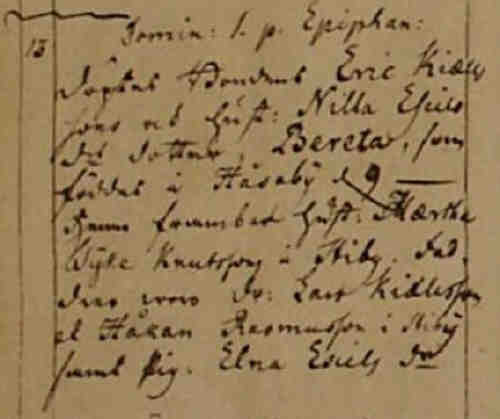 13 Domin: 1. p. Epiphan:
döptes Bondens Eric Kiæls
sons och hust: Nilla Esiels
dr dotter, Bereta, som
föddes i Håsaby d 9
henne frambar hust: Mærtha
Knutssons i Stiby. Fad,
drar woro dr: Lars Kiælsson
et Håkan Rasmusson i Stiby
samt pig. Elna Esiels dr